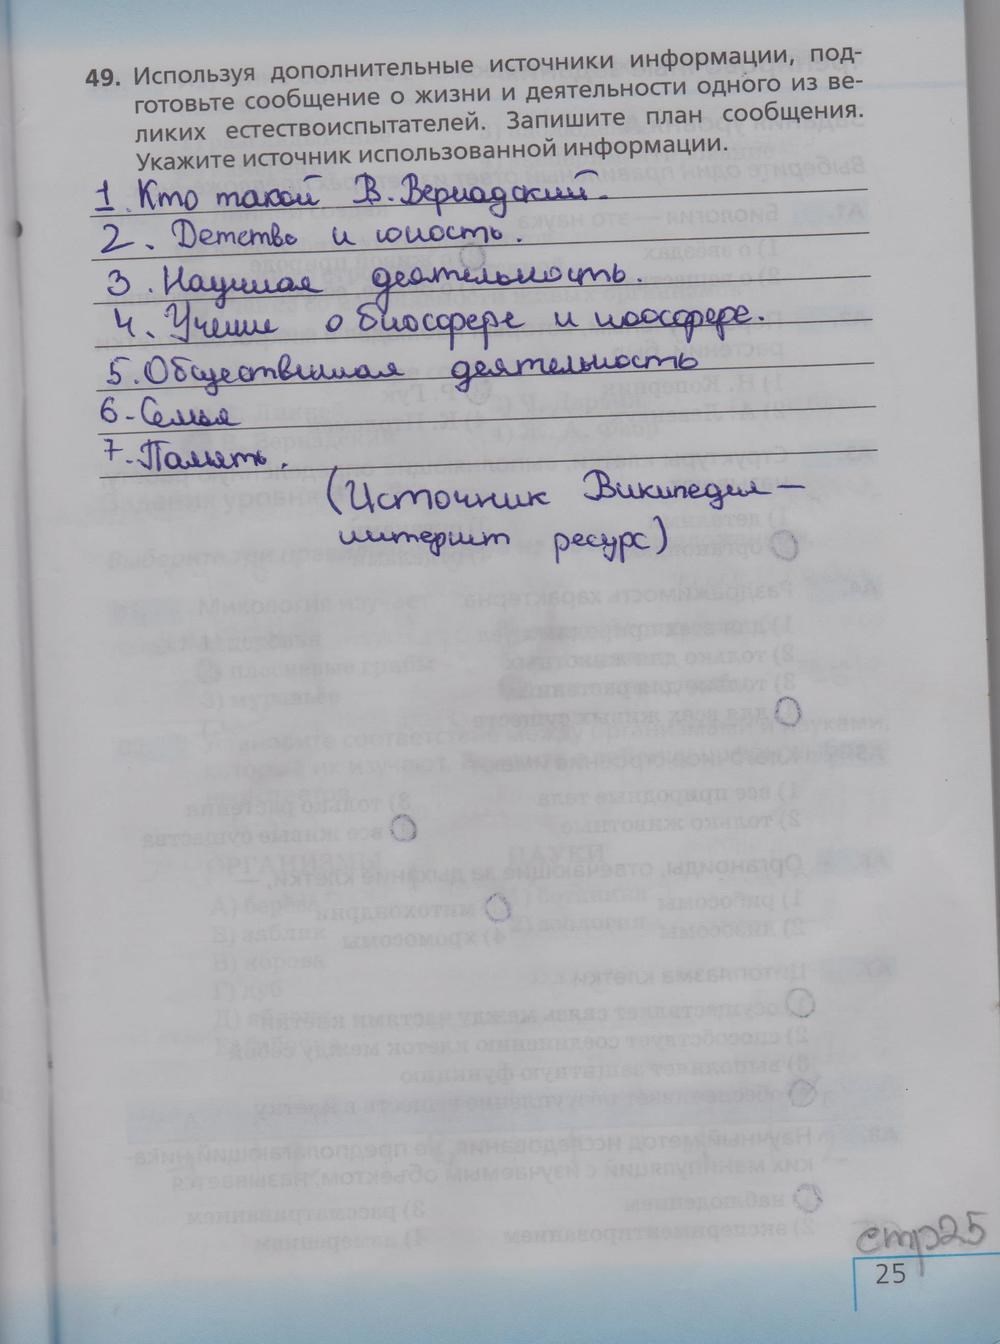 49. Используя дополнительные источники информации, под-
готовьте сообщение о жизни и деятельности одного из ве-
ликих естествоиспытателей. Запишите план сообщения.
Укажите источник использованной информации.
1. Кто такой В. Вернадский.
2. Детство и юность.
3. Научная деятельность.
4. Учение о биосфере и ноосфере.
5. Общественная деятельность
6. Семья
7. Память.
(Источник Википедия –
интернет ресурс)
стр25
25